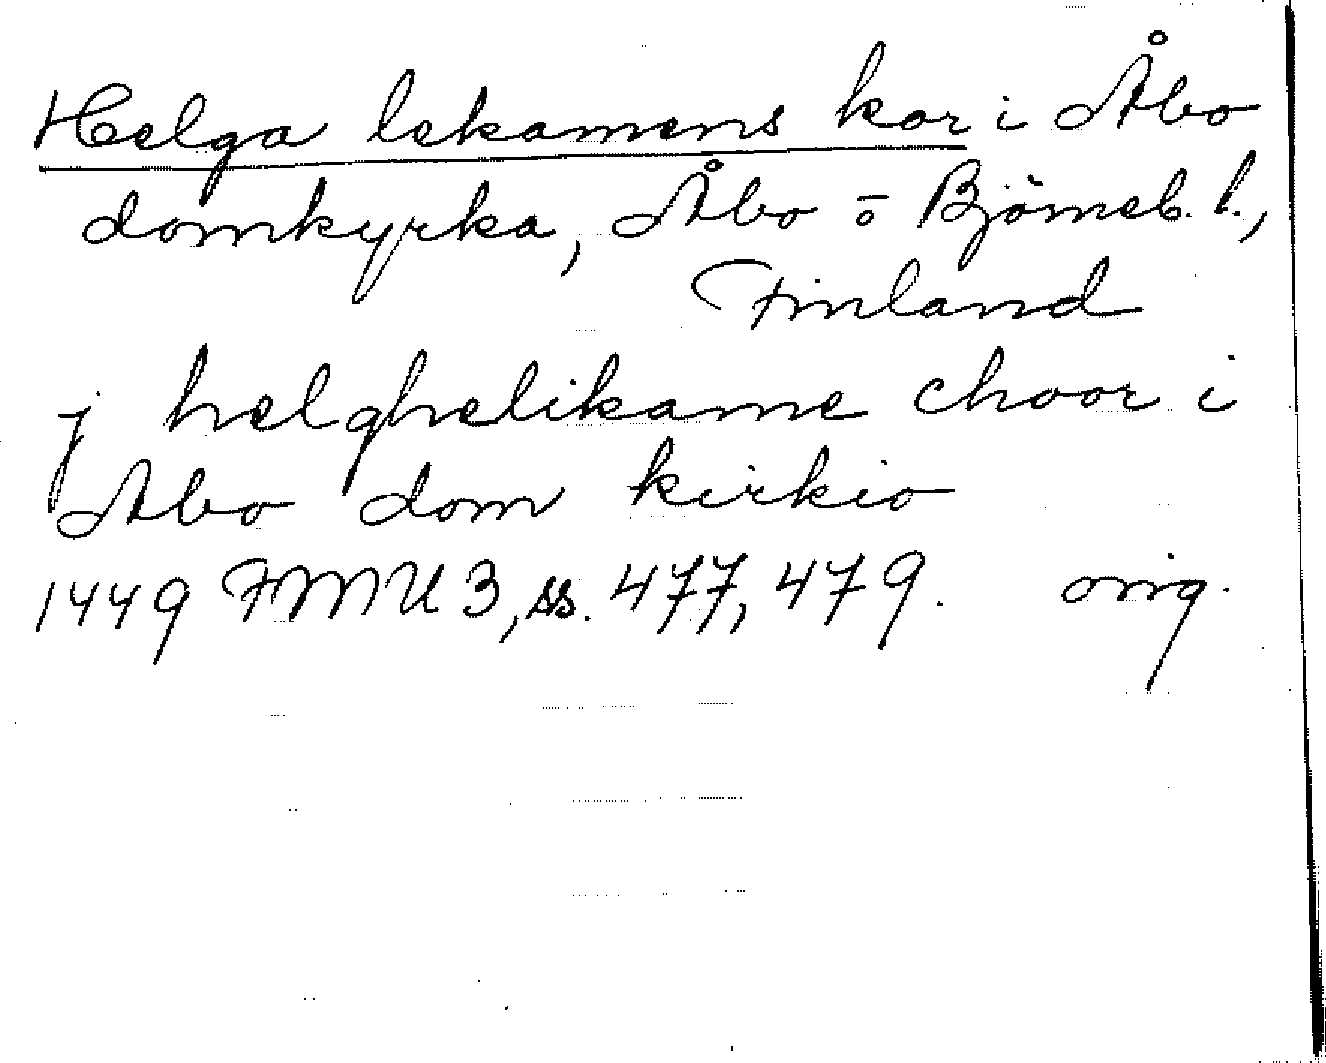 Helga lekamens kor i Åbo
domkyrka, Åbo o Björneb. l.,
Finland
j helghelikame choor i
Abo dom kirkio
1449 FMU 3, ss. 477, 479. orig.